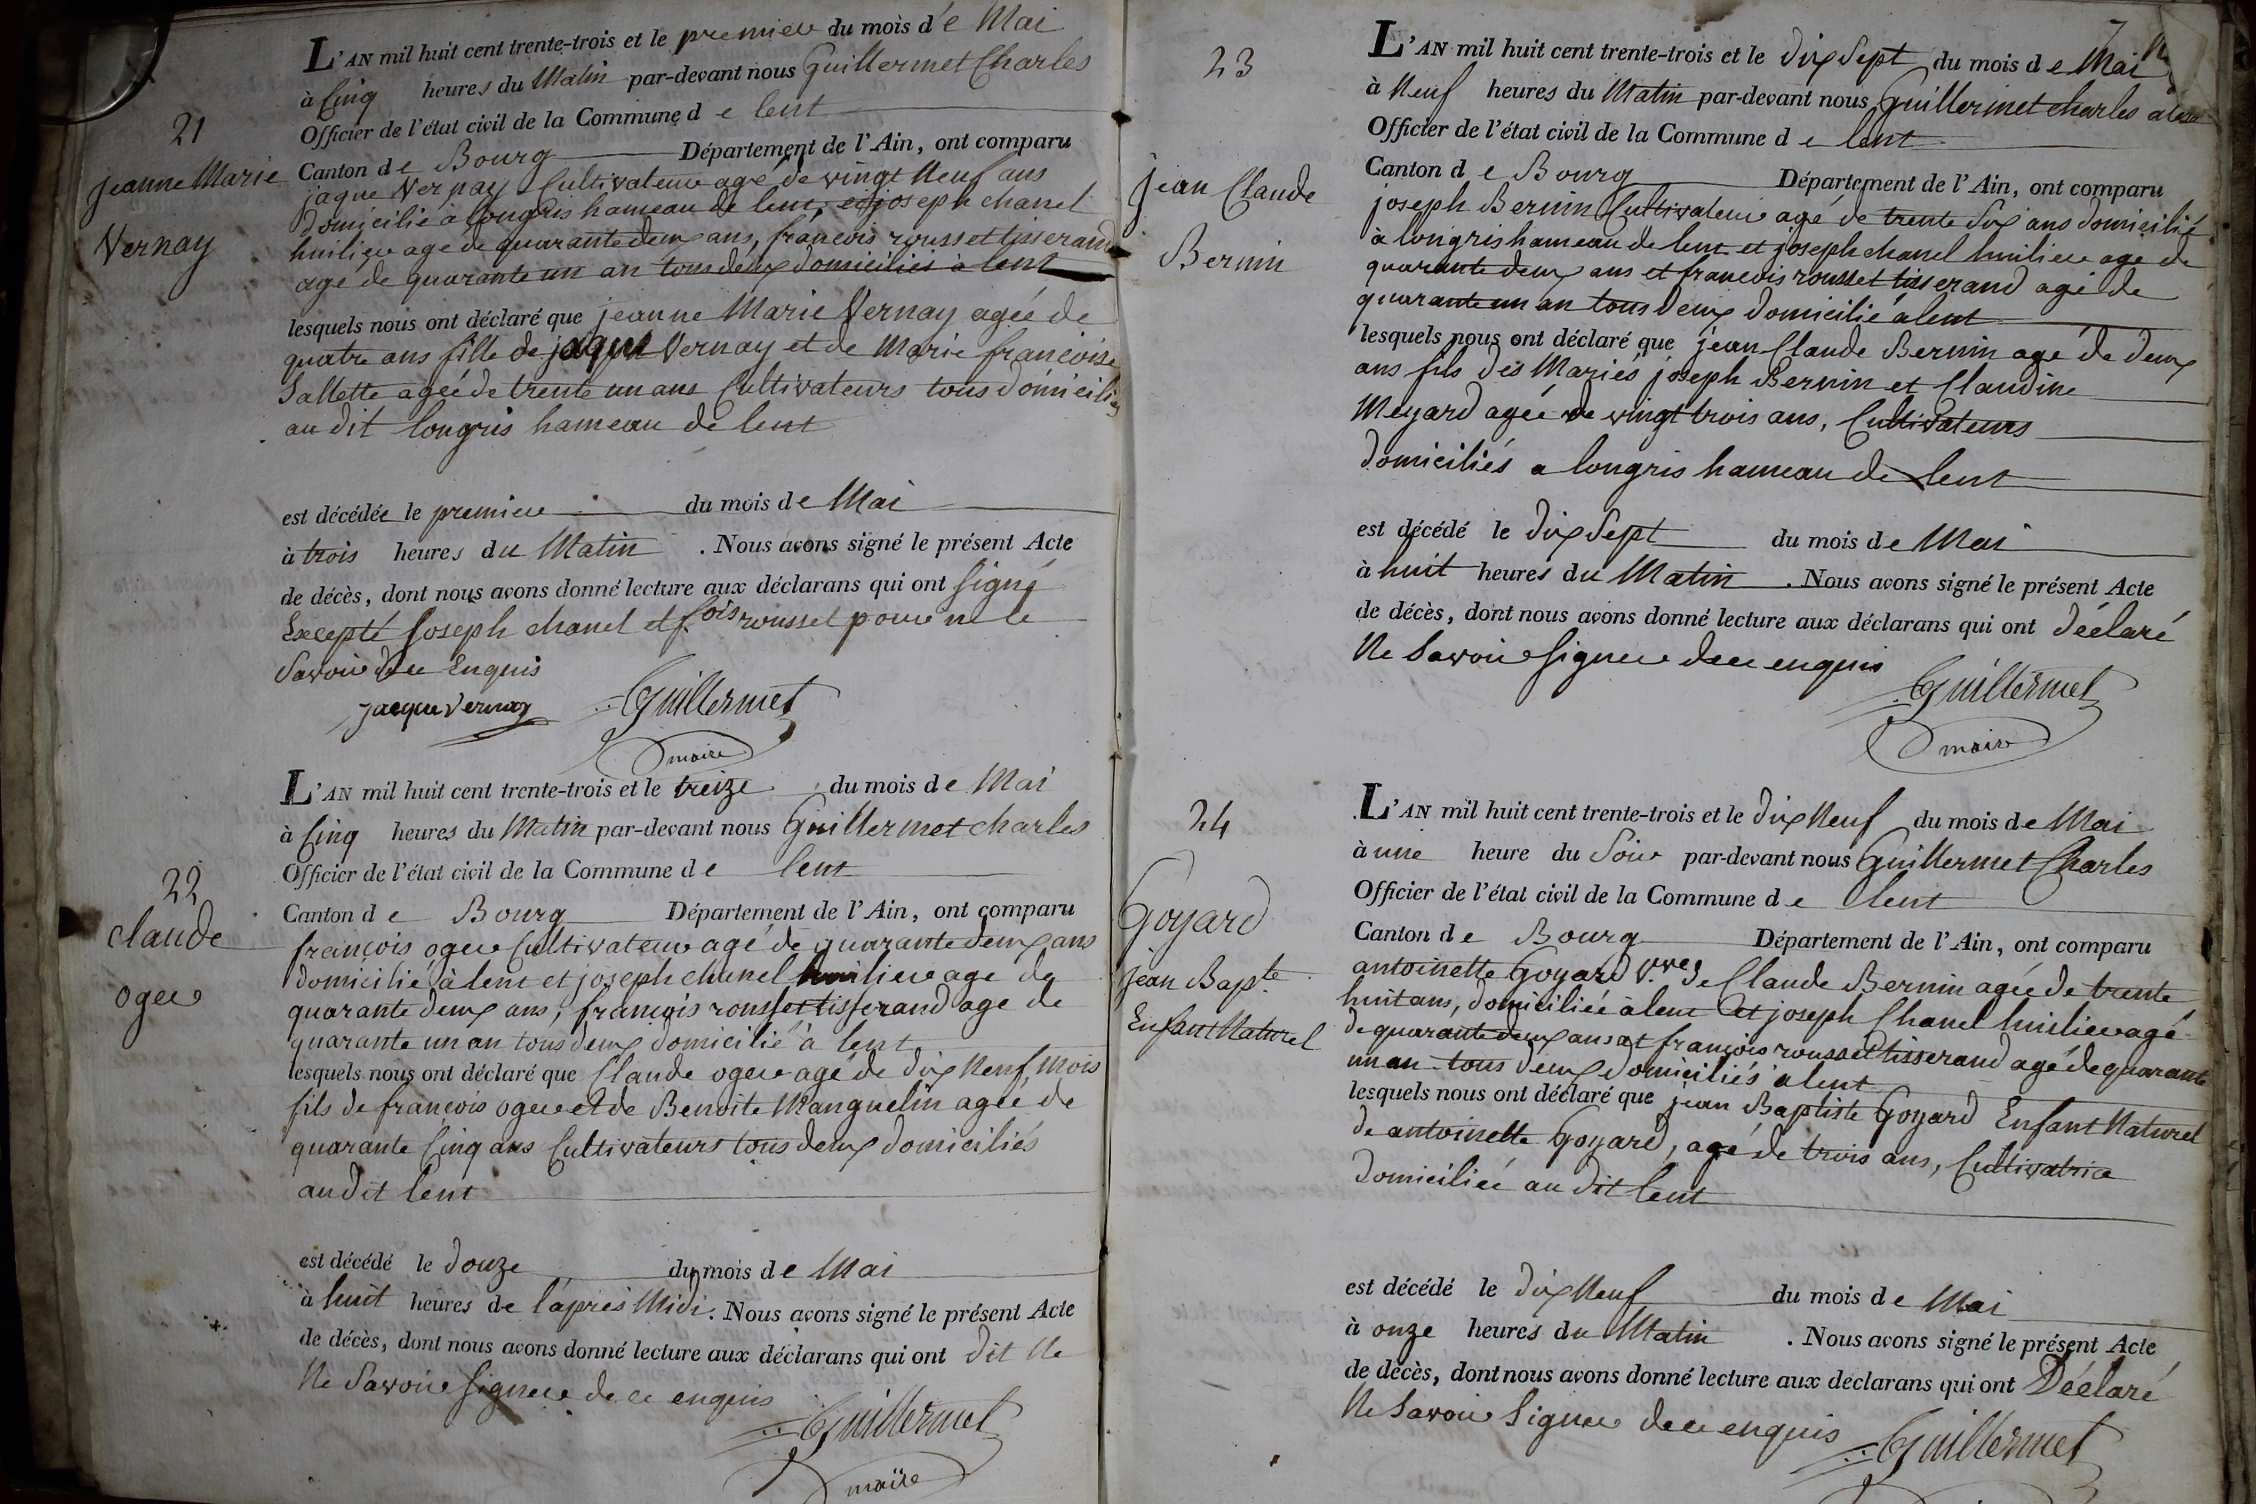 21
Jeanne Marie
Vernay
L'AN mil huit cent trente-trois et le premier du mois de Mai
à Cinq heures du Matin par-devant nous Guillermet Charles
Officier de l'état civil de la Commune de lent
Canton de Bourg Département de l'Ain, ont comparu
jaque Vernay Cultivateur agé de vingt Neuf ans
domicilié à longris hameau de lent, et joseph chanel
huilier age de quarante deux ans, francois rousset tisserand
agé de quarante un an tous deux domiciliés à lent
lesquels nous ont déclaré que jeanne Marie Vernay agée de
quatre ans fille de jaque Vernay et de Marie francoise
Sallette agée de trente un ans Cultivateurs tous domiciliés
au dit longris hameau de lent
est décédée le premier du mois de Mai
à trois heures du Matin . Nous avons signé le présent Acte
de décès, dont nous avons donné lecture aux déclarans qui ont Signé
Excepté Joseph chanel et f.ois rousset pour ne le
Savoir de ce Enquis
jacque vernay Guillermet
maire
22
claude
oger
L'AN mil huit cent trente-trois et le treize du mois de Mai
à Cinq heures du Matin par-devant nous Guillermet charles
Officier de l'état civil de la Commune de lent
Canton de Bourg Département de l'Ain, ont comparu
françois oger Cultivateur agé de quarante deux ans
domicilié à lent et joseph chanel huilier age de
quarante deux ans, françois rousset tisserand age de
quarante un an tous deux domicilié à lent
lesquels nous ont déclaré que Claude oger agé de dix Neuf Mois
fils de françois oger et de Benoite Manguelin agée de
quarante Cinq ans Cultivateurs tous deux domiciliés
au dit lent
est décédé le douze du mois de Mai
à huit heures de l'après Midi. Nous avons signé le présent Acte
de décès, dont nous avons donné lecture aux déclarans qui ont dit Ne
Ne Savoir Signer de ce enquis
Guillermet
maire
7
23
jean Claude
Bernin
L'AN mil huit cent trente-trois et le dix Sept du mois de Mai
à Neuf heures du Matin par-devant nous Guillermet charles
Officier de l'état civil de la Commune de lent
Canton de Bourg Département de l'Ain, ont comparu
joseph Bernin Cultivateur agé de trente Six ans domicilié
à longris hameau de lent et joseph chanel huilier age de
quarante deux ans et francois rousset tisserand agé de
quarante un an tous deux domicilié à lent
lesquels nous ont déclaré que jean Claude Bernin age de deux
ans fils des Mariés joseph Bernin et Claudine
Meyard agée de vingt trois ans, Cultivateurs
domiciliés a longris hameau de lent
est décédé le dix Sept du mois de Mai
à huit heures du Matin . Nous avons signé le présent Acte
de décès, dont nous avons donné lecture aux déclarans qui ont déclaré
Ne Savoir Signer de ce enquis
Guillermet
maire
24
Goyard
jean Bap.te
Enfant Naturel
L'AN mil huit cent trente-trois et le dix Neuf du mois de Mai
à une heure du Soir par-devant nous Guillermet Charles
Officier de l'état civil de la Commune de lent
Canton de Bourg Département de l'Ain, ont comparu
antoinette Goyard V.ve de Claude Bernin agée de trente
huit ans, domiciliée à lent et joseph Chanel huilier agé
de quarante deux ans et françois rousset tisserand agé de quarante
un an tous deux domiciliés a lent
lesquels nous ont déclaré que jean Baptiste Goyard Enfant Naturel
de antoinette Goyard, agé de trois ans, Cultivatrice
domiciliée au dit lent
est décédé le dix Neuf du mois de Mai
à onze heures du Matin . Nous avons signé le présent Acte
de décès, dont nous avons donné lecture aux déclarans qui ont Déclaré
Ne Savoir Signer de ce enquis Guillermet